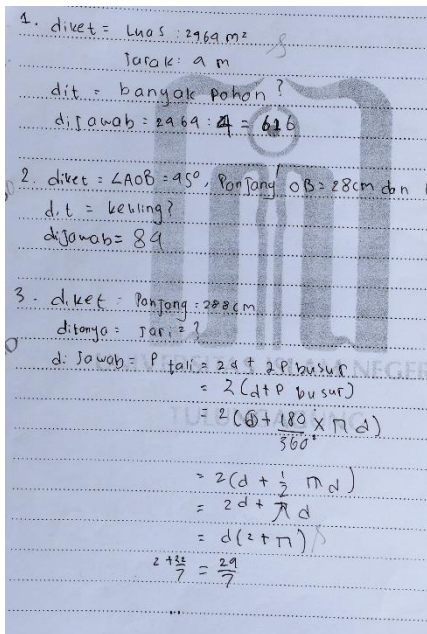 1. diket = Luas : 2464 m²
Jarak : 4 m
dit = banyak pohon ?
dijawab = 2464 : 4 = 616
2. diket = ∠AOB = 45°, Panjang OB = 28 cm dan
dit = keliling ?
dijawab = 84
3. diket = Panjang : 288 cm
ditanya = jari² ?
dijawab = P tali = 2d + 2P busur
= 2(d + P busur)
= 2(d + 180/360° × π d)
= 2(d + 1/2 π d)
= 2d + π d
= d(2 + π)
2 + 22/7 = 29/7
UNIVERSITAS ISLAM NEGERI
TULUNGAGUNG